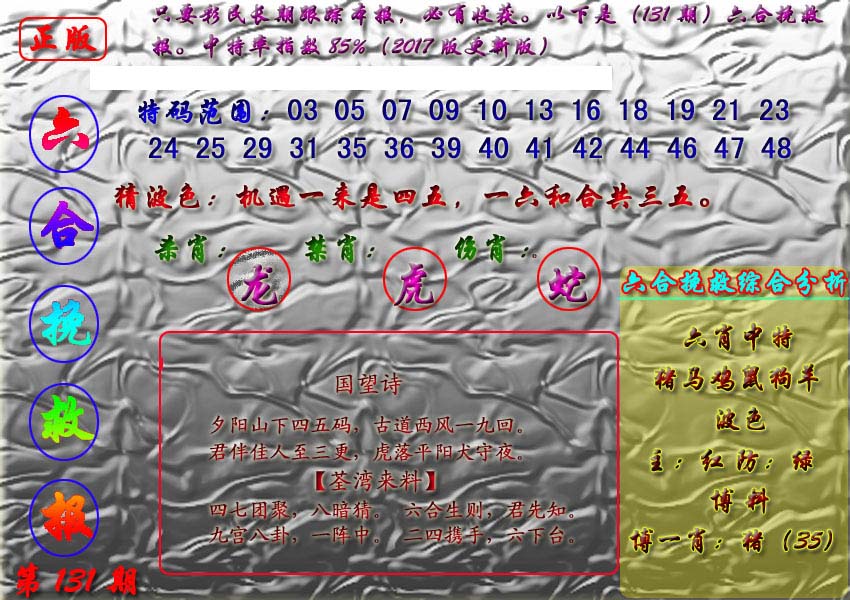 正版
只要彩民长期跟踪本报，必有收获。以下是（131期）六合挽救
报。中特率指数85%（2017版更新版）
六合挽救报
第131期
特码范围：03 05 07 09 10 13 16 18 19 21 23
24 25 29 31 35 36 39 40 41 42 44 46 47 48
猜波色：机遇一来是四五，一六和合共三五。
杀肖：龙 禁肖：虎 伤肖：蛇
国望诗
夕阳山下四五码，古道西风一九回。
君伴佳人至三更，虎落平阳犬守夜。
【荃湾来料】
四七团聚，八暗猜。 六合生则，君先知。
九宫八卦，一阵中。 二四携手，六下台。
六合挽救综合分析
六肖中特
猪马鸡鼠狗羊
波色
主：红防：绿
博料
博一肖：猪（35）